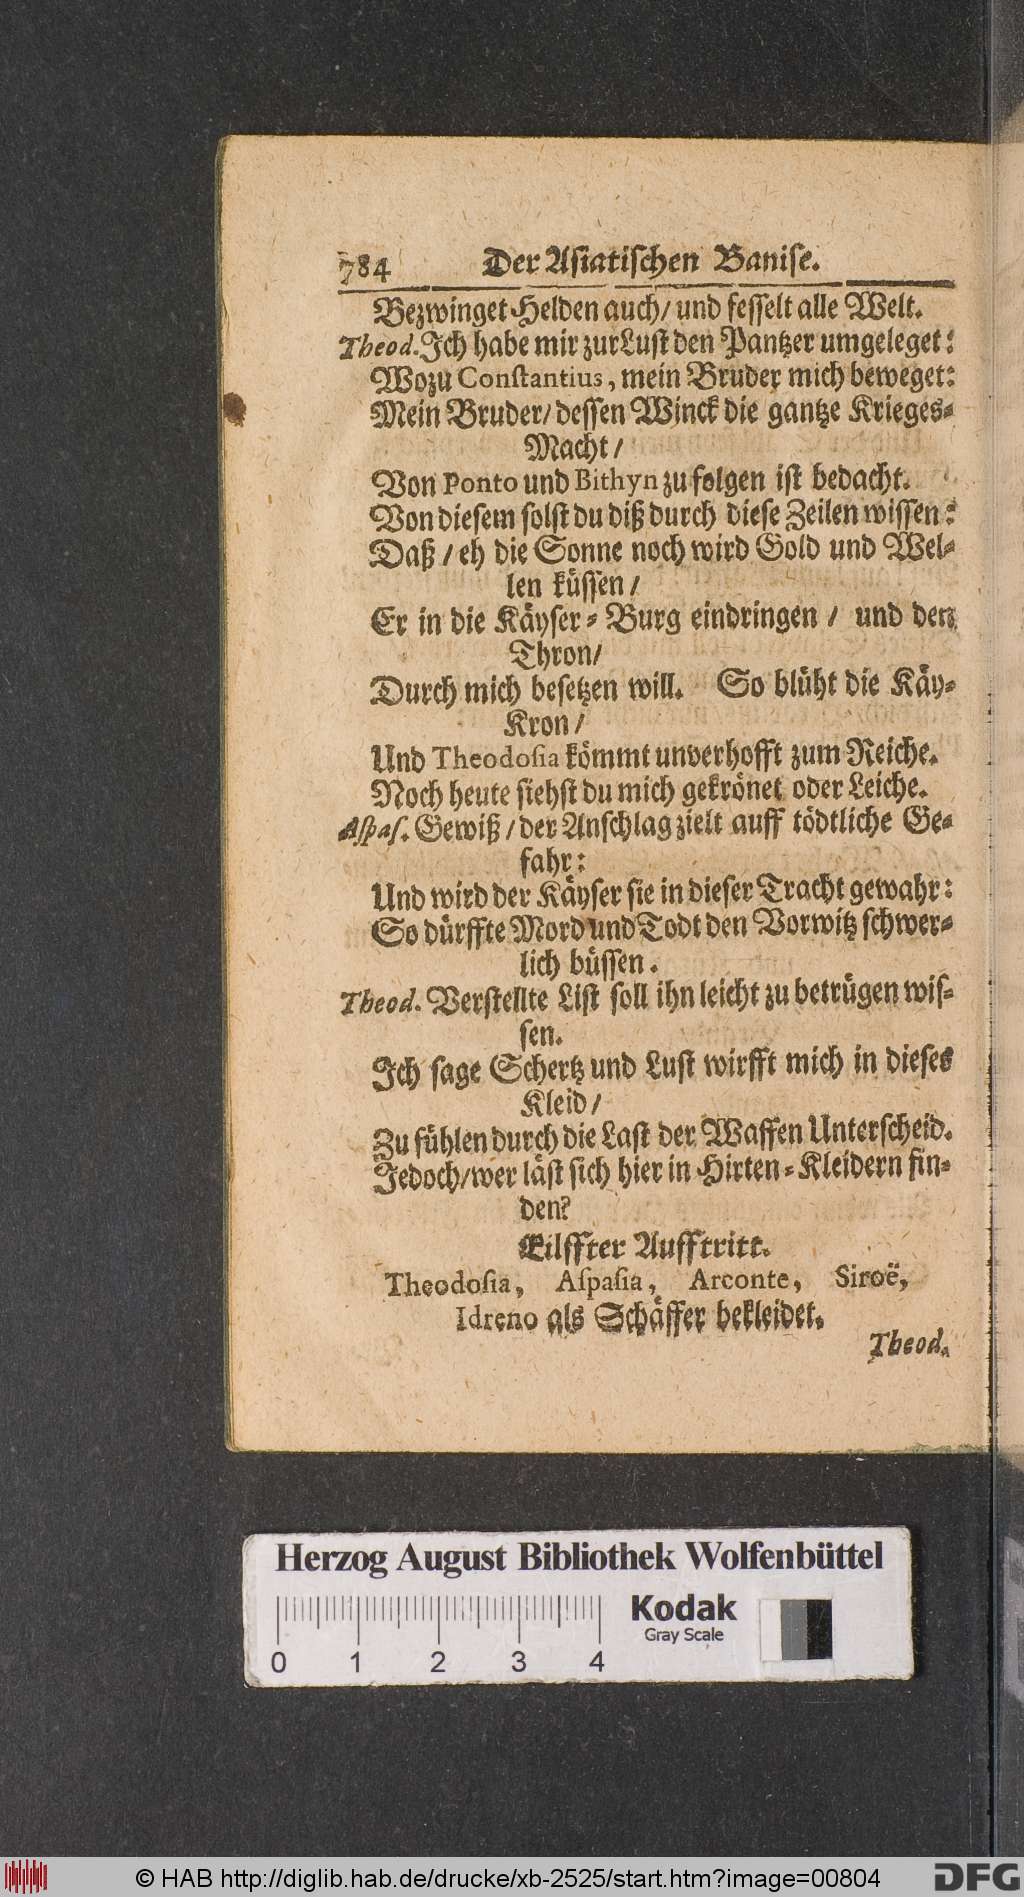 784 Der Asiatischen Banise.
Bezwinget Helden auch/ und fesselt alle Welt.
Theod. Ich habe mir zur Lust den Pantzer umgeleget:
Wozu Constantius, mein Bruder mich beweget:
Mein Bruder/ dessen Winck die gantze Krieges-
Macht/
Von Ponto und Bithyn zu folgen ist bedacht.
Von diesem solst du diß durch diese Zeilen wissen:
Daß / eh die Sonne noch wird Gold und Wel-
len küssen /
Er in die Käyser-Burg eindringen / und den
Thron/
Durch mich besetzen will. So blüht die Käy-
Kron /
Und Theodosia kömmt unverhofft zum Reiche.
Noch heute siehst du mich gekrönet oder Leiche.
Aspas. Gewiß / der Anschlag zielt auff tödtliche Ge-
fahr:
Und wird der Käyser sie in dieser Tracht gewahr:
So dürffte Mord und Todt den Vorwitz schwer-
lich büssen.
Theod. Verstellte List soll ihn leicht zu betrügen wis-
sen.
Ich sage Schertz und Lust wirfft mich in dieses
Kleid /
Zu fühlen durch die Last der Waffen Unterscheid.
Jedoch/ wer läst sich hier in Hirten-Kleidern fin-
den?
Eilffter Aufftritt.
Theodosia, Aspasia, Arconte, Siroë,
Idreno als Schäffer bekleidet.
Theod.
Herzog August Bibliothek Wolfenbüttel
Kodak
Gray Scale
0 1 2 3 4
© HAB http://diglib.hab.de/drucke/xb-2525/start.htm?image=00804
DFG